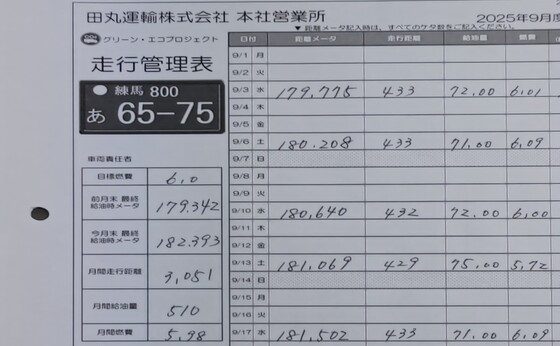 田丸運輸株式会社 本社営業所
2025年9月度
▼ 距離メータ記入時は、すべてのケタ数をご記入ください。
グリーン・エコプロジェクト
走行管理表
練馬 800
あ 65-75
車両責任者
目標燃費 6.0
前月末 最終給油時メータ 179,342
今月末 最終給油時メータ 182,393
月間走行距離 3,051
月間給油量 510
月間燃費 5.98
日付 距離メータ 走行距離 給油量 燃費
9/1 月
9/2 火
9/3 水 179,775 433 72.00 6.01
9/4 木
9/5 金
9/6 土 180.208 433 71.00 6.09
9/7 日
9/8 月
9/9 火
9/10 水 180,640 432 72.00 6.00
9/11 木
9/12 金
9/13 土 181,069 429 75.00 5.72
9/14 日
9/15 月
9/16 火
9/17 水 181,502 433 71.00 6.09